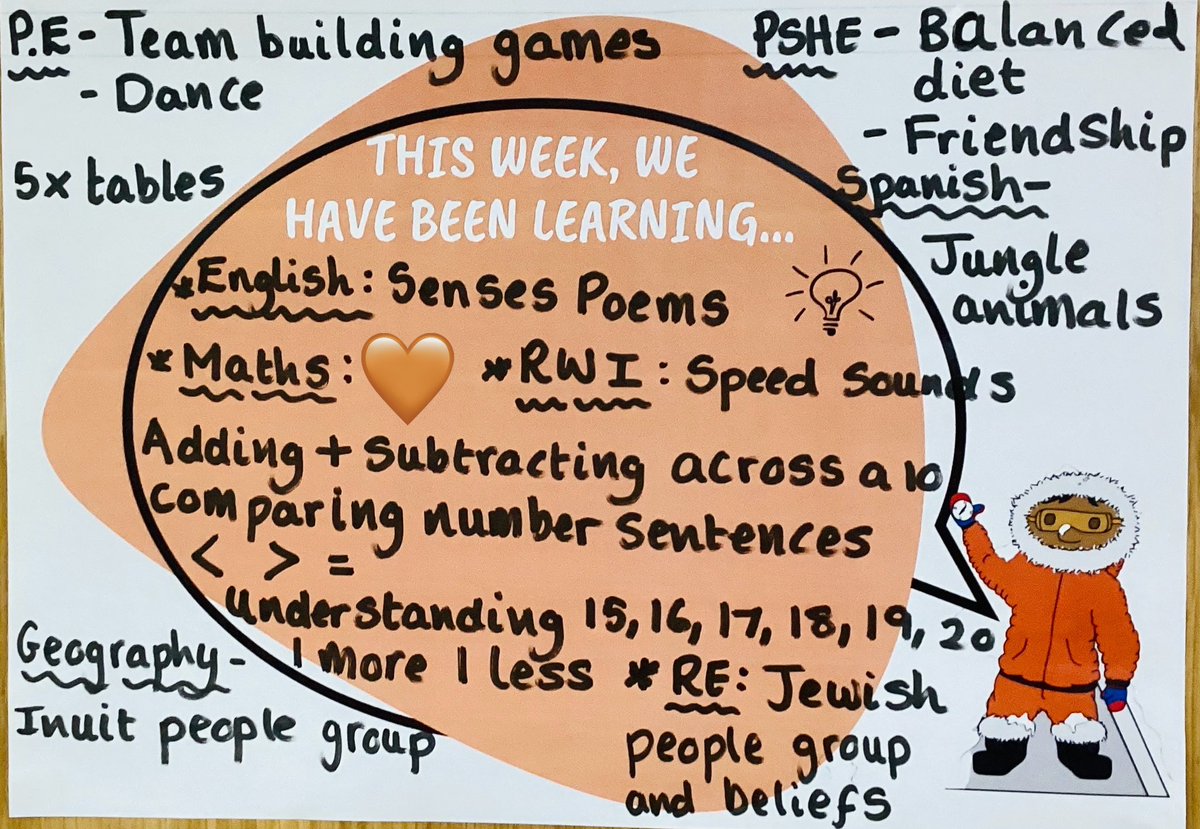 P.E - Team building games
- Dance
5x tables
PSHE - Balanced
diet
- Friendship
Spanish-
Jungle
animals
THIS WEEK, WE
HAVE BEEN LEARNING...
* English: Senses Poems
* Maths: 🧡 * RWI: Speed Sounds
Adding + Subtracting across a 10
comparing number sentences
< > =
understanding 15, 16, 17, 18, 19, 20
1 more 1 less
* RE: Jewish
people group
and beliefs
Geography-
Inuit people group